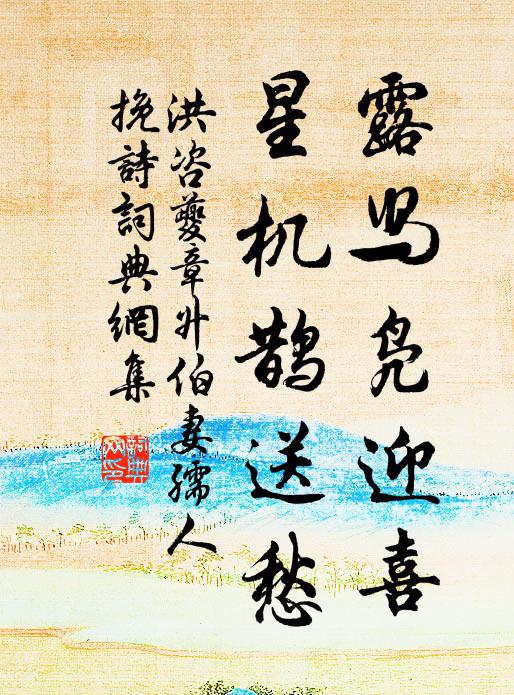 露舄凫迎喜
星机鵲送愁
洪咨夔章升伯妻孺人
挽詩詞典網集